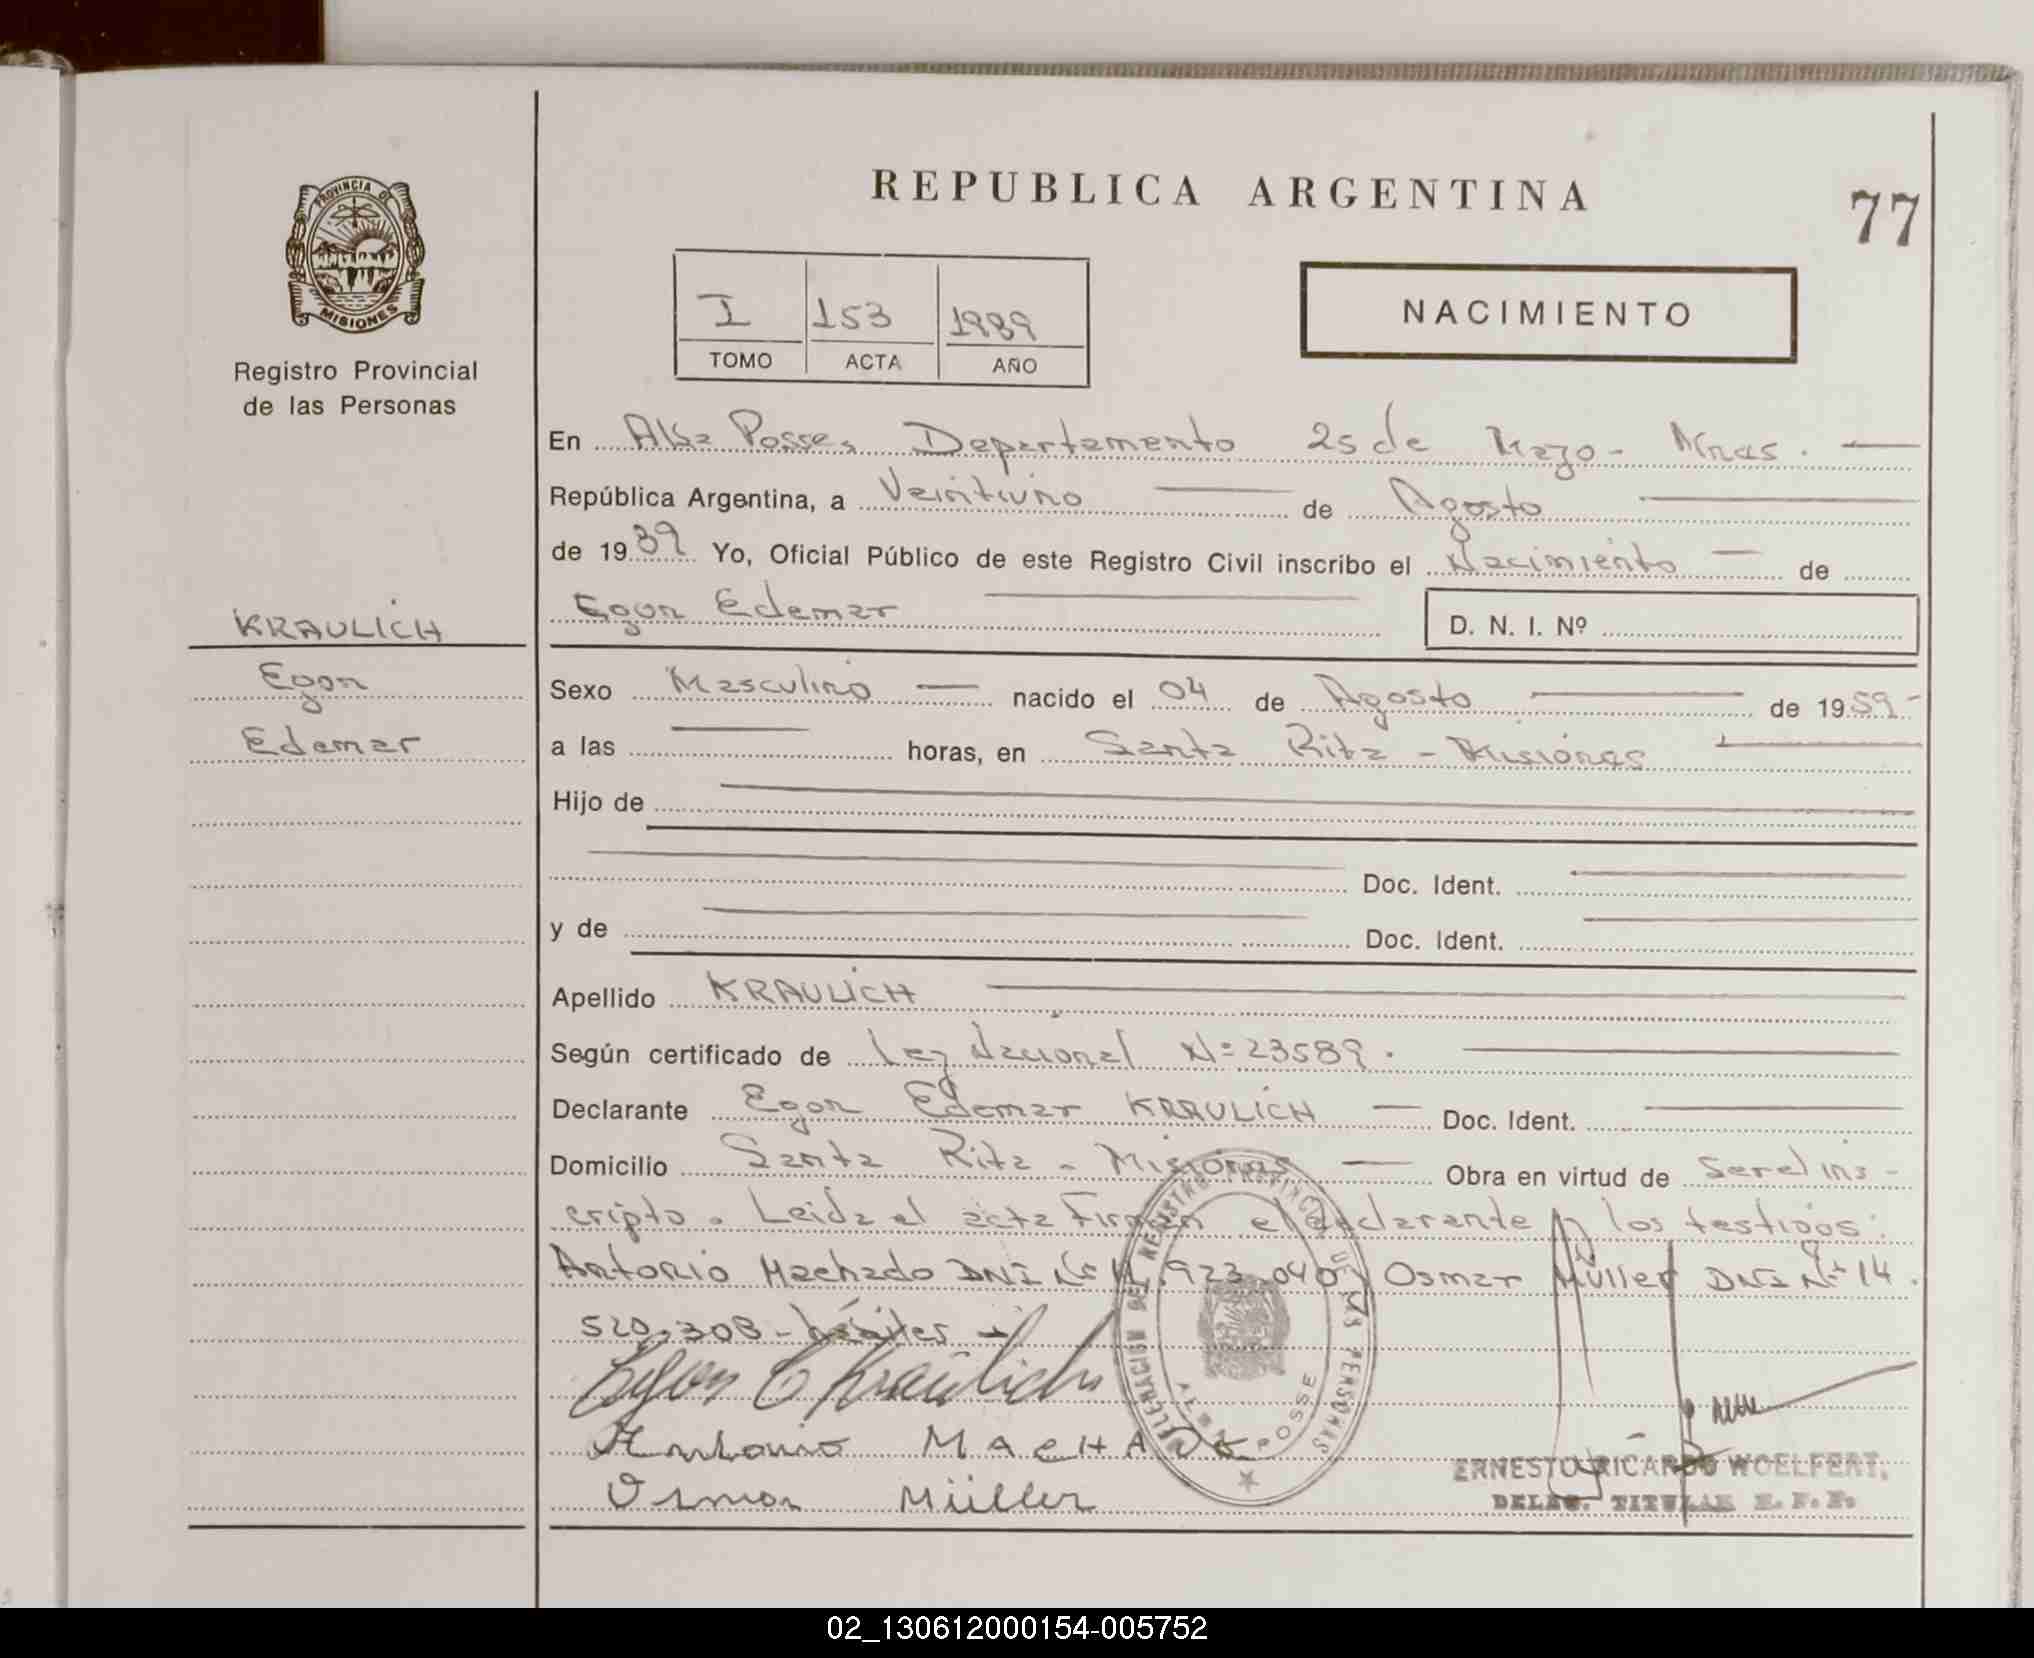 REPUBLICA ARGENTINA
77
PROVINCIA DE
MISIONES
Registro Provincial
de las Personas
I 153 1989
TOMO ACTA AÑO
NACIMIENTO
En Alba Posse, Departamento 25 de Mayo - Mnes.
República Argentina, a Veintiuno de Agosto
de 1989 Yo, Oficial Público de este Registro Civil inscribo el Nacimiento de
Egon Edemar
D. N. I. Nº
KRAULICH
Egon
Edemar
Sexo Masculino nacido el 04 de Agosto de 1959-
a las horas, en Santa Rita - Misiones
Hijo de
Doc. Ident.
y de Doc. Ident.
Apellido KRAULICH
Según certificado de Ley Nacional Nº 23589.
Declarante Egon Edemar KRAULICH Doc. Ident.
Domicilio Santa Rita - Misiones Obra en virtud de Ser el ins-
cripto. Leida el acta Firman el declarante y los testigos:
Antonio Machado DNI Nº 11.923.040 y Osmar Müller DNI Nº 14.
520.308 - hábiles -
Egon E Kraulich
Antonio MACHADO
Osmar Müller
DELEGACION DEL REGISTRO PROVINCIAL DE LAS PERSONAS
ALBA POSSE
ERNESTO RICARDO WOELFERT.
DELEG. TITULAR
02_130612000154-005752